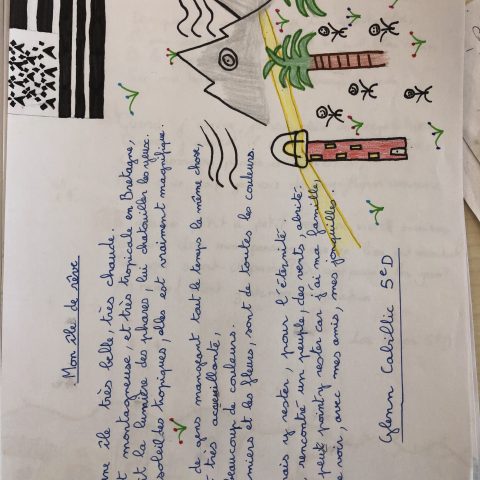 Mon île de rêve
une île très belle très chaude.
montagneuse, et très tropicale en Bretagne,
la lumière des phares, lui chatouiller les yeux.
soleil des tropiques, elles est vraiment magnifique.
de gens mangeant tout le temps la même chose,
très accueillante,
beaucoup de couleurs.
et les fleurs, sont de toutes les couleurs.
y rester, pour l'éternité.
rencontré un peuple, des verts, abrité.
peut point y rester car j'ai ma famille,
voir, avec mes amis, mes jonquilles.
Glenn Cabillic 5eD